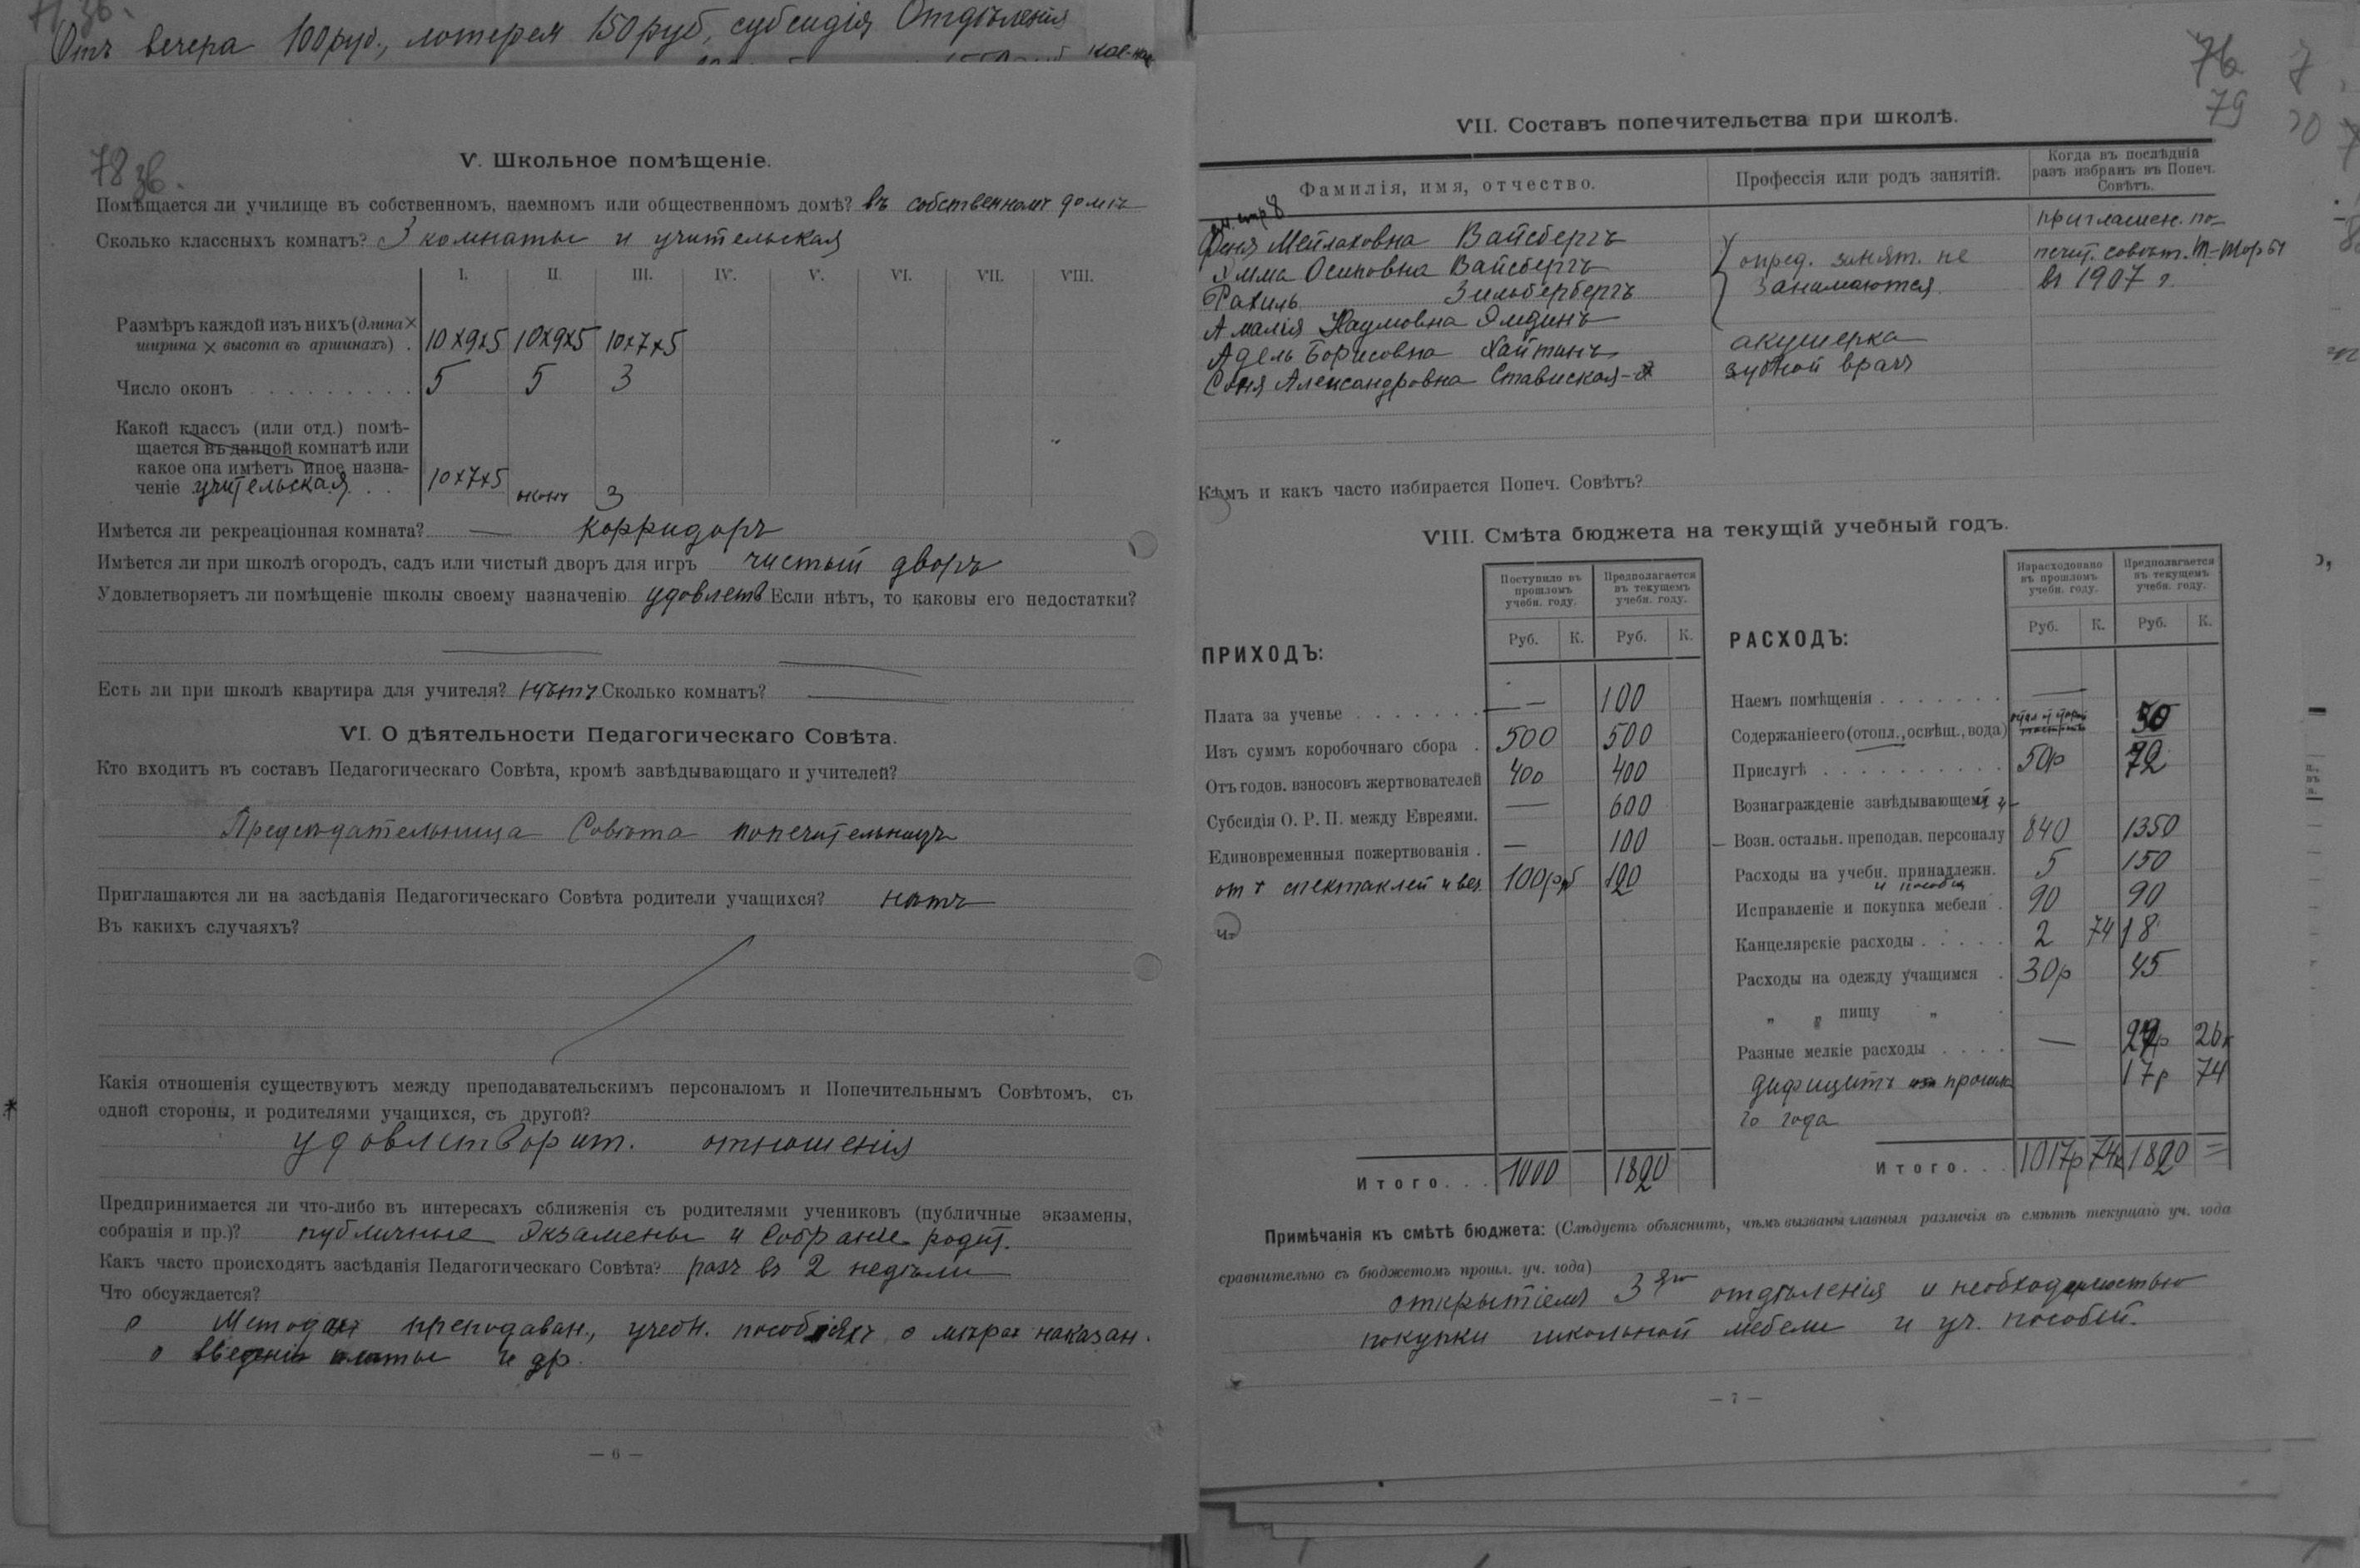 Отъ вечера 100 руб., лотерея 150 руб, субсидія Отдѣленія
78 зв.
V. Школьное помѣщеніе.
Помѣщается ли училище въ собственномъ, наемномъ или общественномъ домѣ? въ собственномъ домѣ
Сколько классныхъ комнатъ? 3 комнаты и учительская
I. II. III. IV. V. VI. VII. VIII.
Размѣръ каждой изъ нихъ (длина ×
ширина × высота въ аршинахъ) . 10×9×5 10×9×5 10×7×5
Число оконъ . . . . . . . . . . 5 5 3
Какой классъ (или отд.) помѣ-
щается въ данной комнатѣ или
какое она имѣетъ иное назна-
ченіе учительская . . 10×7×5 оконъ 3
Имѣется ли рекреаціонная комната? — Корридоръ
Имѣется ли при школѣ огородъ, садъ или чистый дворъ для игръ чистый дворъ
Удовлетворяетъ ли помѣщеніе школы своему назначенію удовлетв Если нѣтъ, то каковы его недостатки?
Есть ли при школѣ квартира для учителя? нѣтъ Сколько комнатъ? —
VI. О дѣятельности Педагогическаго Совѣта.
Кто входитъ въ составъ Педагогическаго Совѣта, кромѣ завѣдывающаго и учителей?
Предсѣдательница Совѣта попечительницъ
Приглашаются ли на засѣданія Педагогическаго Совѣта родители учащихся? нѣтъ
Въ какихъ случаяхъ?
Какія отношенія существуютъ между преподавательскимъ персоналомъ и Попечительнымъ Совѣтомъ, съ
одной стороны, и родителями учащихся, съ другой?
удовлетворит. отношенія
Предпринимается ли что-либо въ интересахъ сближенія съ родителями учениковъ (публичные экзамены,
собранія и пр.)? публичные экзамены и собраніе родит.
Какъ часто происходятъ засѣданія Педагогическаго Совѣта? разъ въ 2 недѣли
Что обсуждается?
о Методахъ преподаван., учебн. пособіяхъ о мѣрах наказан.
о введеніи платы и др.
— 6 —
76
79
VII. Составъ попечительства при школѣ.
Фамилія, имя, отчество. Профессія или родъ занятій. Когда въ послѣдній
разъ избранъ въ Попеч.
Совѣтъ.
см. стр 8
Феня Мейлаховна Вайсбергъ
Эмма Осиповна Вайсбергъ
Рахиль Зильбербергъ
Амалія Наумовна Эмдинъ
Адель Борисовна Хайтинъ акушерка
Соня Александровна Ставиская зубной врачъ
опред. занят. не
занимаются.
приглашен. по-
печит. совѣт. Т-Торы
въ 1907 г.
Кѣмъ и какъ часто избирается Попеч. Совѣтъ?
VIII. Смѣта бюджета на текущій учебный годъ.
ПРИХОДЪ:
Поступило въ
прошломъ
учебн. году. Предполагается
въ текущемъ
учебн. году.
Руб. К. Руб. К.
Плата за ученье . . . . . . . — 100
Изъ суммъ коробочнаго сбора . 500 500
Отъ годов. взносовъ жертвователей 400 400
Субсидія О. Р. П. между Евреями. — 600
Единовременныя пожертвованія . — 100
от спектаклей и веч. 100 рб 120
Итого. . . 1000 1820
РАСХОДЪ:
Израсходовано
въ прошломъ
учебн. году. Предполагается
въ текущемъ
учебн. году.
Руб. К. Руб. К.
Наемъ помѣщенія . . . . . . . —
Содержаніе его (отопл., освѣщ., вода) 50
Прислугѣ . . . . . . . . . . 50р 72
Вознагражденіе завѣдывающему
Возн. остальн. преподав. персоналу 840 1350
Расходы на учебн. принадлежн. 5 150
и пособія
Исправленіе и покупка мебели . 90 90
Канцелярскіе расходы . . . . . 2 74 18
Расходы на одежду учащимся . 30р 45
„ „ пищу „ .
Разные мелкіе расходы . . . . — 26к
дифицитъ прошла 17р 74
го года
Итого. . . 1017р 74к 1820 =
Примѣчанія къ смѣтѣ бюджета: (Слѣдуетъ объяснить, чѣмъ вызваны главныя различія въ смѣтѣ текущаго уч. года
сравнительно съ бюджетомъ прошл. уч. года)
открытіемъ 3го отдѣленія и необходимостью
покупки школьной мебели и уч. пособій.
— 7 —